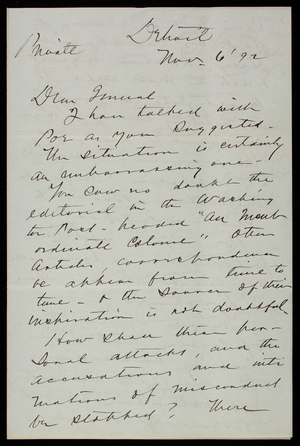 Private
Detroit
Nov. 6' 92
Dear General
I have talked with
Poe as you suggested.
The situation is certainly
an embarrassing one-
You saw no doubt the
editorial in the Washing
ton Post- headed "An Insub
ordinate Colonel", Other
Articles, correspondence
be appear from time to
time - & the source of their
inspiration is not doubtful.
How shall these per-
sonal attacks, and the
accusations and inti
mations of misconduct
be stopped? There